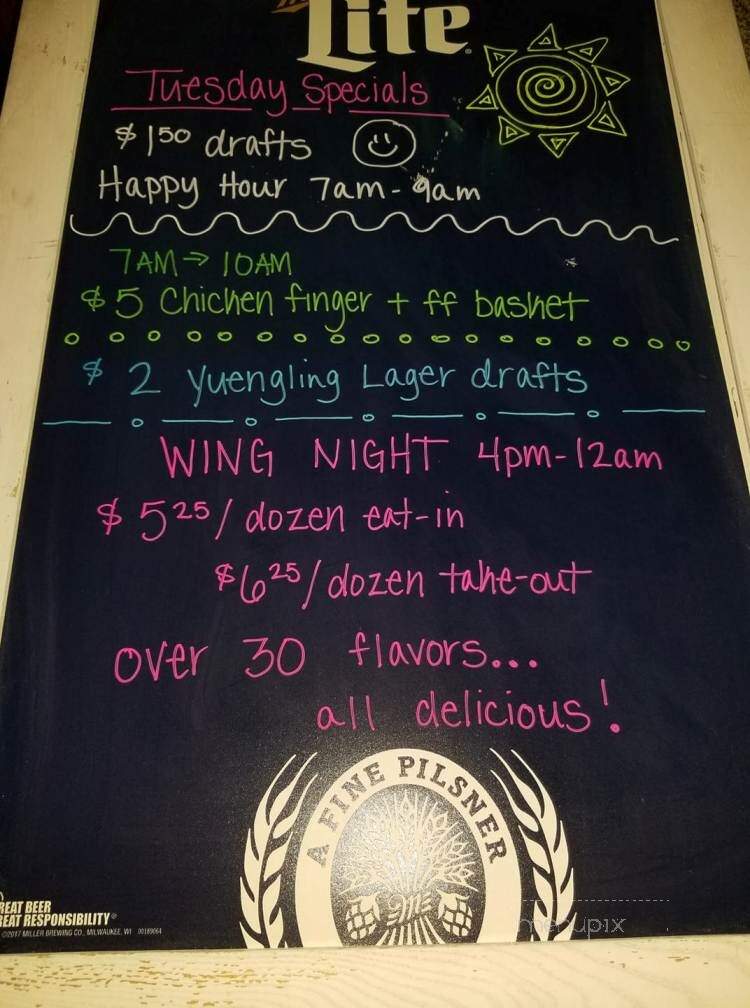 Lite
Tuesday Specials
$1⁵⁰ drafts
Happy Hour 7am-9am
7AM→10AM
$5 Chicken finger + ff basket
$2 Yuengling Lager drafts
WING NIGHT 4pm-12am
$5²⁵/dozen eat-in
$6²⁵/dozen take-out
over 30 flavors...
all delicious!
A FINE PILSNER
REAT BEER
EAT RESPONSIBILITY®
©2017 MILLER BREWING CO., MILWAUKEE, WI 00189064
menupix